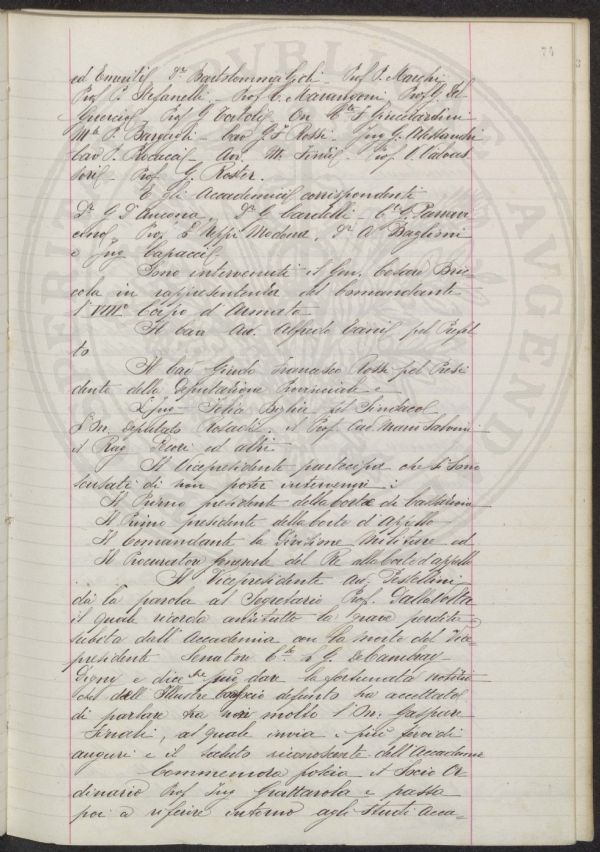 74
ed Emeriti Dr Bartolommei Gioli - Prof P. Marchi
Prof C. Stefanelli - Prof C. Marangoni, Prof G. Del
Guercio, Prof G. On Cte F. Guicciardini
Mse P. Bargagli - Cav G. F. Rossi. Ing G. Alessandri
Cav P. Avv. Prof. V. Valvas
sori - Prof. G. Roster.
E gli Accademici corrispondenti
Dr G. D'Ancona, Dr G. Caroselli - G. Passer
Prof. Dr A. Baglioni
e Ing Capacci
Sono intervenuti il Gen. Cesare Bri
cola in rappresentanza del Comandante
l'VIII° Corpo d'Armata
Il Cav Avv. Alfredo pel Prefet
to
Il Cav Guido Francesco Rossi pel Presi
dente della Deputazione Provinciale e
pel Sindaco
l'On. Deputato Rosadi. il Prof. Cav Mario
il Rag Pucci ed altri
Il Vicepresidente partecipa che si sono
scusati di non poter intervenire:
Il Primo presidente della Corte di Cassazione
Il Primo presidente della Corte d'Appello
Il Comandante la Divisione Militare ed
Il Procuratore generale del Re alla Corte d'appello
Il Vicepresidente Avv. Pestellini
dà la parola al Segretario Prof. Dalla Volta
il quale ricorda anzitutto la grave perdita
subita dall'Accademia con la morte del Vice-
presidente Senatore Cte G. De Cambray
Digny e dice che può dare la fortunata notizia
che dell'Illustre Consocio defunto ha accettato
di parlare tra non molto l'On. Gaspare
Finali, al quale invia i più fervidi
auguri e il saluto riconoscente dell'Accademia
Commemora poscia il Socio Or
dinario Prof Ing Grattarola e passa
poi a riferire intorno agli Studi Acca=